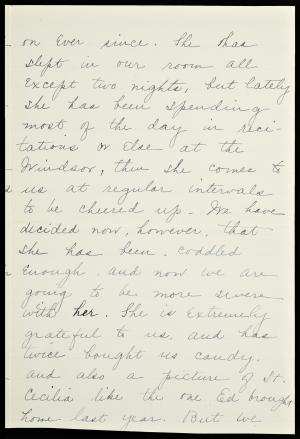 on Ever since. She has
slept in our room all
Except two nights, but lately
she has been spending
most of the day in reci-
tations or Else at the
Windsor, then she comes to
us at regular intervals
to be cheered up. We have
decided now, however, that
she has been coddled
Enough and now we are
going to be more severe
with her. She is Extremely
grateful to us, and has
twice bought us candy.
and also a picture of St.
Cecilia like the one Ed brought
home last year. But we